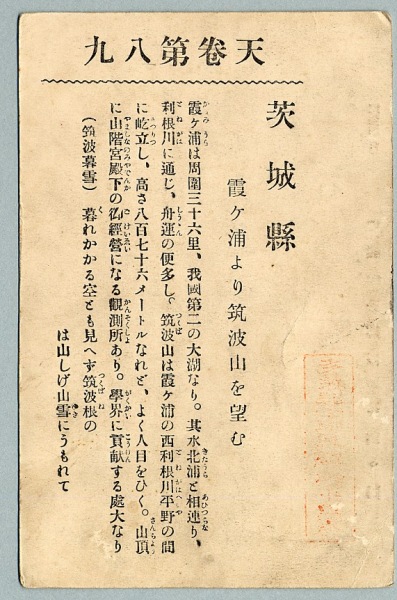 天卷第八九
茨城縣
霞ケ浦より筑波山を望む
霞ケ浦は周圍三十六里、我國第二の大湖なり。其水北浦と相連り、
利根川に通じ、舟運の便多し。筑波山は霞ケ浦の西利根川平野の間
に屹立し、高さ八百七十六メートルなれど、よく人目をひく。山頂
に山階宮殿下の御經營になる觀測所あり。學界に貢献する處大なり
(筑波暮雪) 暮れかかる空とも見へず筑波根の
は山しげ山雪にうもれて